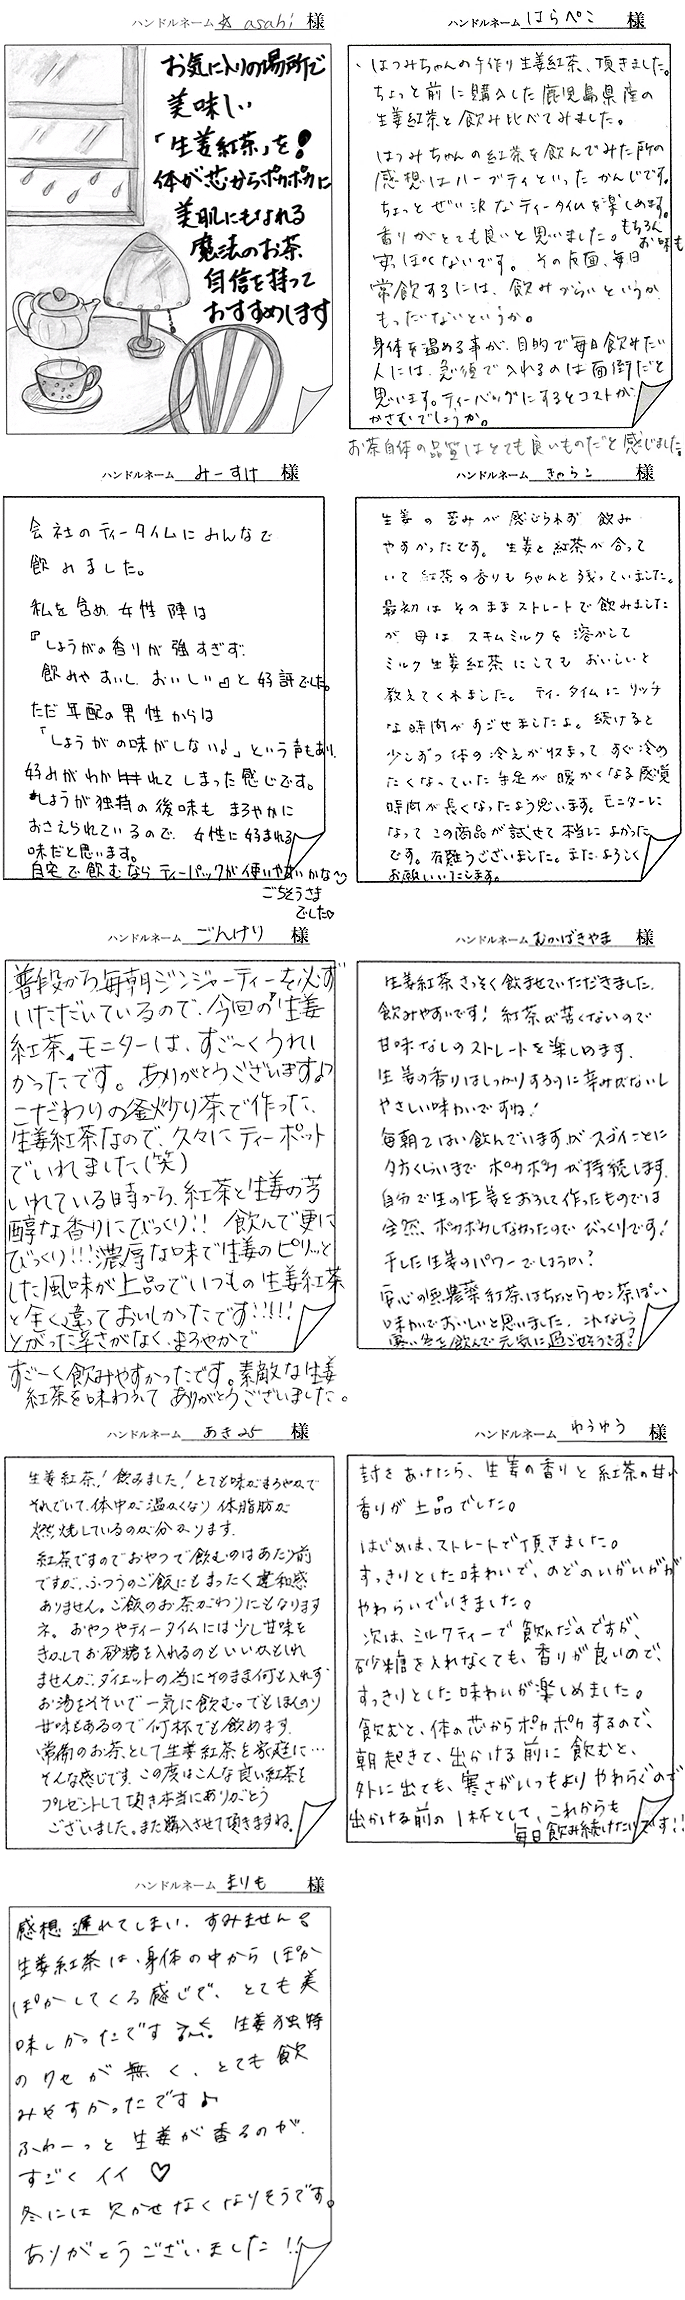 ハンドルネーム ☆ asahi 様
お気に入りの場所で
美味しい
「生姜紅茶」を!
体が芯からポカポカに
美肌にもなれる
魔法のお茶
自信を持って
おすすめします
ハンドルネーム はらぺこ 様
はつみちゃんの手作り生姜紅茶、頂きました。
ちょっと前に購入した鹿児島県産の
生姜紅茶と飲み比べてみました。
はつみちゃんの紅茶を飲んでみた所の
感想はハーブティといったかんじです。
ちょっとぜい沢なティータイムを楽しめます。
香りがとても良いと思いました。もちろん
お味も
安っぽくないです。その反面、毎日
常飲するには、飲みづらいというか
もったいないというか。
身体を温める事が、目的で毎日飲みたい
人には、急須で入れるのは面倒だと
思います。ティーバッグにするとコストが
かさむでしょうか。
お茶自体の品質はとても良いものだと感じました。
ハンドルネーム みーすけ 様
会社のティータイムにみんなで
飲みました。
私を含め女性陣は
『しょうがの香りが強すぎず、
飲みやすいし、おいしい』と好評でした。
ただ年配の男性からは
「しょうがの味がしない!」という声もあり、
好みがわかれてしまった感じです。
しょうが独特の後味も まろやかに
おさえられているので、女性に好まれる
味だと思います。
自宅で飲むなら ティーパックが使いやすいかな
ごちそうさま
でした♡
ハンドルネーム きゃらこ 様
生姜の苦みが感じられず 飲み
やすかったです。生姜と紅茶が合って
いて 紅茶の香りもちゃんと残っていました。
最初は そのままストレートで飲みました
が 母は スキムミルクを溶かして
ミルク生姜紅茶にしても おいしいと
教えてくれました。ティータイムにリッチ
な時間がすごせましたよ。続けると
少しずつ体の冷えが収まって すぐ冷め
たくなっていた手足が 暖かくなる感覚
時間が長くなったよう思います。モニターに
なって この商品が試せて本当によかった
です。有難うございました。また よろしく
お願いいたします。
ハンドルネーム ごんけり 様
普段から毎朝ジンジャーティーを必ず
いただいているので、今回の『生姜
紅茶』モニターは、すご〜くうれし
かったです。ありがとうございます♪
こだわりの釜炒り茶で作った、
生姜紅茶なので、久々にティーポット
でいれました(笑)
いれている時から、紅茶と生姜の芳
醇な香りにびっくり!! 飲んで更に
びっくり!!!濃厚な味で生姜のピリッと
した風味が上品でいつもの生姜紅茶
と全く違っておいしかったです!!!!!
とがった辛さがなく、まろやかで
すご〜く飲みやすかったです。素敵な生姜
紅茶を味わえて ありがとうございました。
ハンドルネーム むかばきやま 様
生姜紅茶さっそく飲ませていただきました。
飲みやすいです! 紅茶が苦くないので
甘味なしのストレートを楽しめます。
生姜の香りはしっかりするのに辛みがないし
やさしい味わいですね!
毎朝1ぱい飲んでいますが スゴイことに
夕方くらいまで ポカポカが持続します。
自分で生の生姜をおろして作ったものでは
全然、ポカポカしなかったので びっくりです!
干した生姜のパワーでしょうか?
安心の無農薬紅茶はちょっとウーロン茶ぽい
味わいでおいしいと思いました。これなら
寒い冬を飲んで元気に過ごせそうです!
ハンドルネーム あき25 様
生姜紅茶!飲みました!とても味がまろやかで
それでいて、体中が温かくなり 体脂肪が
燃焼しているのが分かります。
紅茶ですのでおやつで飲むのはあたり前
ですが、ふつうのご飯にもまったく違和感
ありません。ご飯のお茶がわりにもなります
ネ。おやつやティータイムには少し甘味を
きかしてお砂糖を入れるのもいいかもしれ
ませんが、ダイエットの為にそのまま何も入れず
お湯をそそいで一気に飲む。でもほんのり
甘味もあるので何杯でも飲めます。
常備のお茶として生姜紅茶を家庭に…
そんな感じです。この度はこんな良い紅茶を
プレゼントして頂き本当にありがとう
ございました。また購入させて頂きますね。
ハンドルネーム ゆうゆう 様
封をあけたら、生姜の香りと紅茶の甘い
香りが上品でした。
はじめは、ストレートで頂きました。
すっきりとした味わいで、のどのいがいがが
やわらいでいきました。
次は、ミルクティーで飲んだのですが、
砂糖を入れなくても、香りが良いので、
すっきりとした味わいが楽しめました。
飲むと、体の芯からポカポカするので、
朝起きて、出かける前に飲むと、
外に出ても、寒さがいつもよりやわらぐので
出かける前の1杯として、これからも
毎日飲み続けたいです!!
ハンドルネーム まりも 様
感想遅れてしまい、すみません
生姜紅茶は、身体の中からぽか
ぽかしてくる感じで、とても美
味しかったです 生姜独特
のクセが無く、とても飲
みやすかったです♪
ふわーっと生姜が香るのが、
すごくイイ♡
冬には欠かせなくなりそうです。
ありがとうございました!!